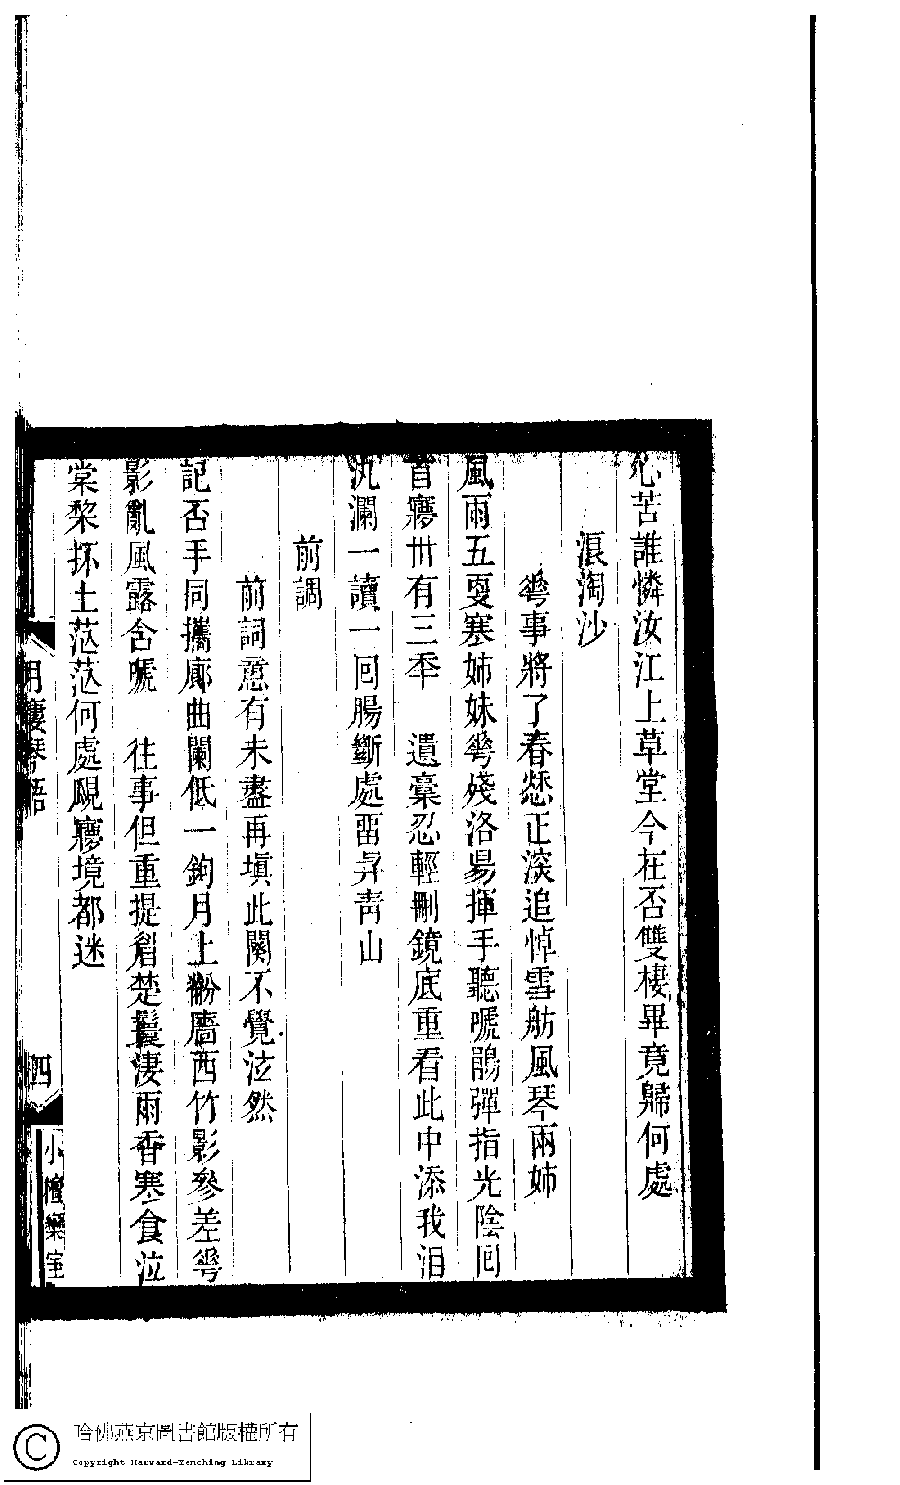 心苦誰憐汝江上草堂今在否雙棲畢竟歸何處
浪淘沙
等事將了春愁正深追悼雪舫風琴兩姊
風雨五更寒姊妹等殘洛昜揮手聽嗁鵑彈指光陰回
首㝱卅有三秊　遺稾忍輕刪鏡底重看此中添我泪
汍瀾一讀一回腸斷處畱㫒青山
前調
前詞意有未盡再塡此闋不覺泫然
記否手同攜廊曲闌低一鉤月上粉牆西竹影參差等
影亂風露含嗁　往事但重提眉楚鬟淒雨香寒食泣
棠棃抔土茫茫何處覓㝱境都迷
月樓琴語
四
小檀欒室
哈佛燕京圖書館版權所有
Copyright Harvard-Yenching Library